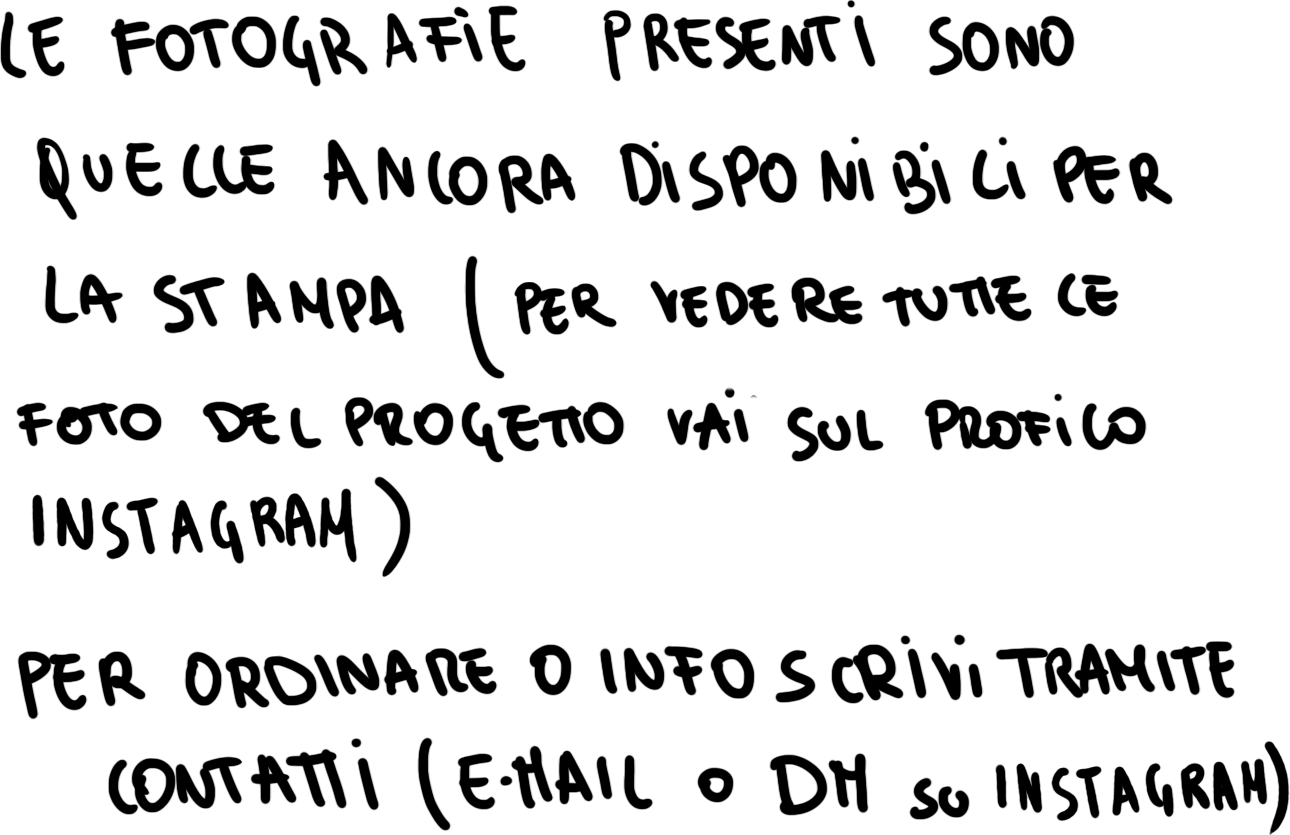 LE FOTOGRAFiE PRESENTi SONO
QUELLE ANCORA DiSPONiBiLi PER
LA STAMPA (PER VEDERE TUTTE LE
FOTO DEL PROGETTO VAi SUL PROFiLO
INSTAGRAM)
PER ORDINARE O INFO SCRiVi TRAMITE
CONTATTi (E-MAIL O DM SU INSTAGRAM)